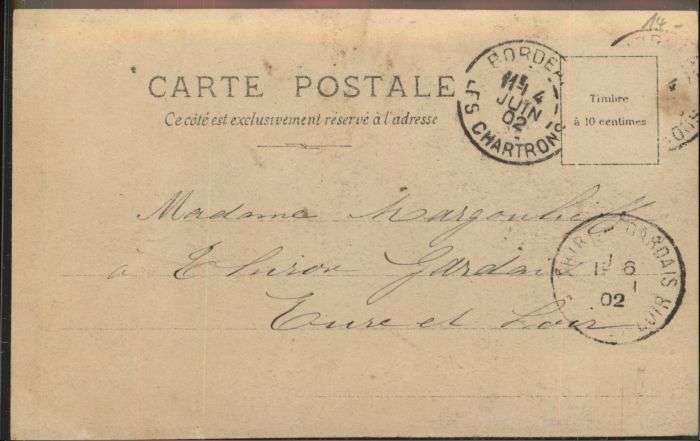 14.-
CARTE POSTALE
Ce côté est exclusivement réservé à l'adresse
BORDEA
4
JUIN
02
LES CHARTRONS
Timbre
à 10 centimes
Madame
à Thiron Gardais
Eure et Loir
GARDAIS
6
02
LOIR